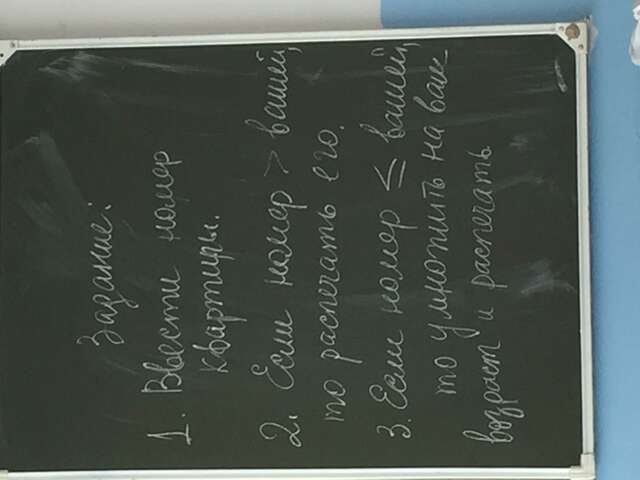 Задание:
1. Ввести номер
квартиры.
2. Если номер > вашей,
то распечать его.
3. Если номер ≤ вашей,
то умножить на ваш
возраст и распечать